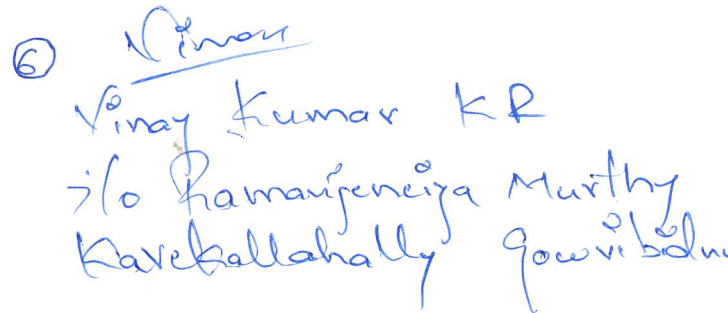 ⑥ Vinay
Vinay Kumar KR
s/o Ramanjeneiya Murthy
Karekallahally Gowribidnu